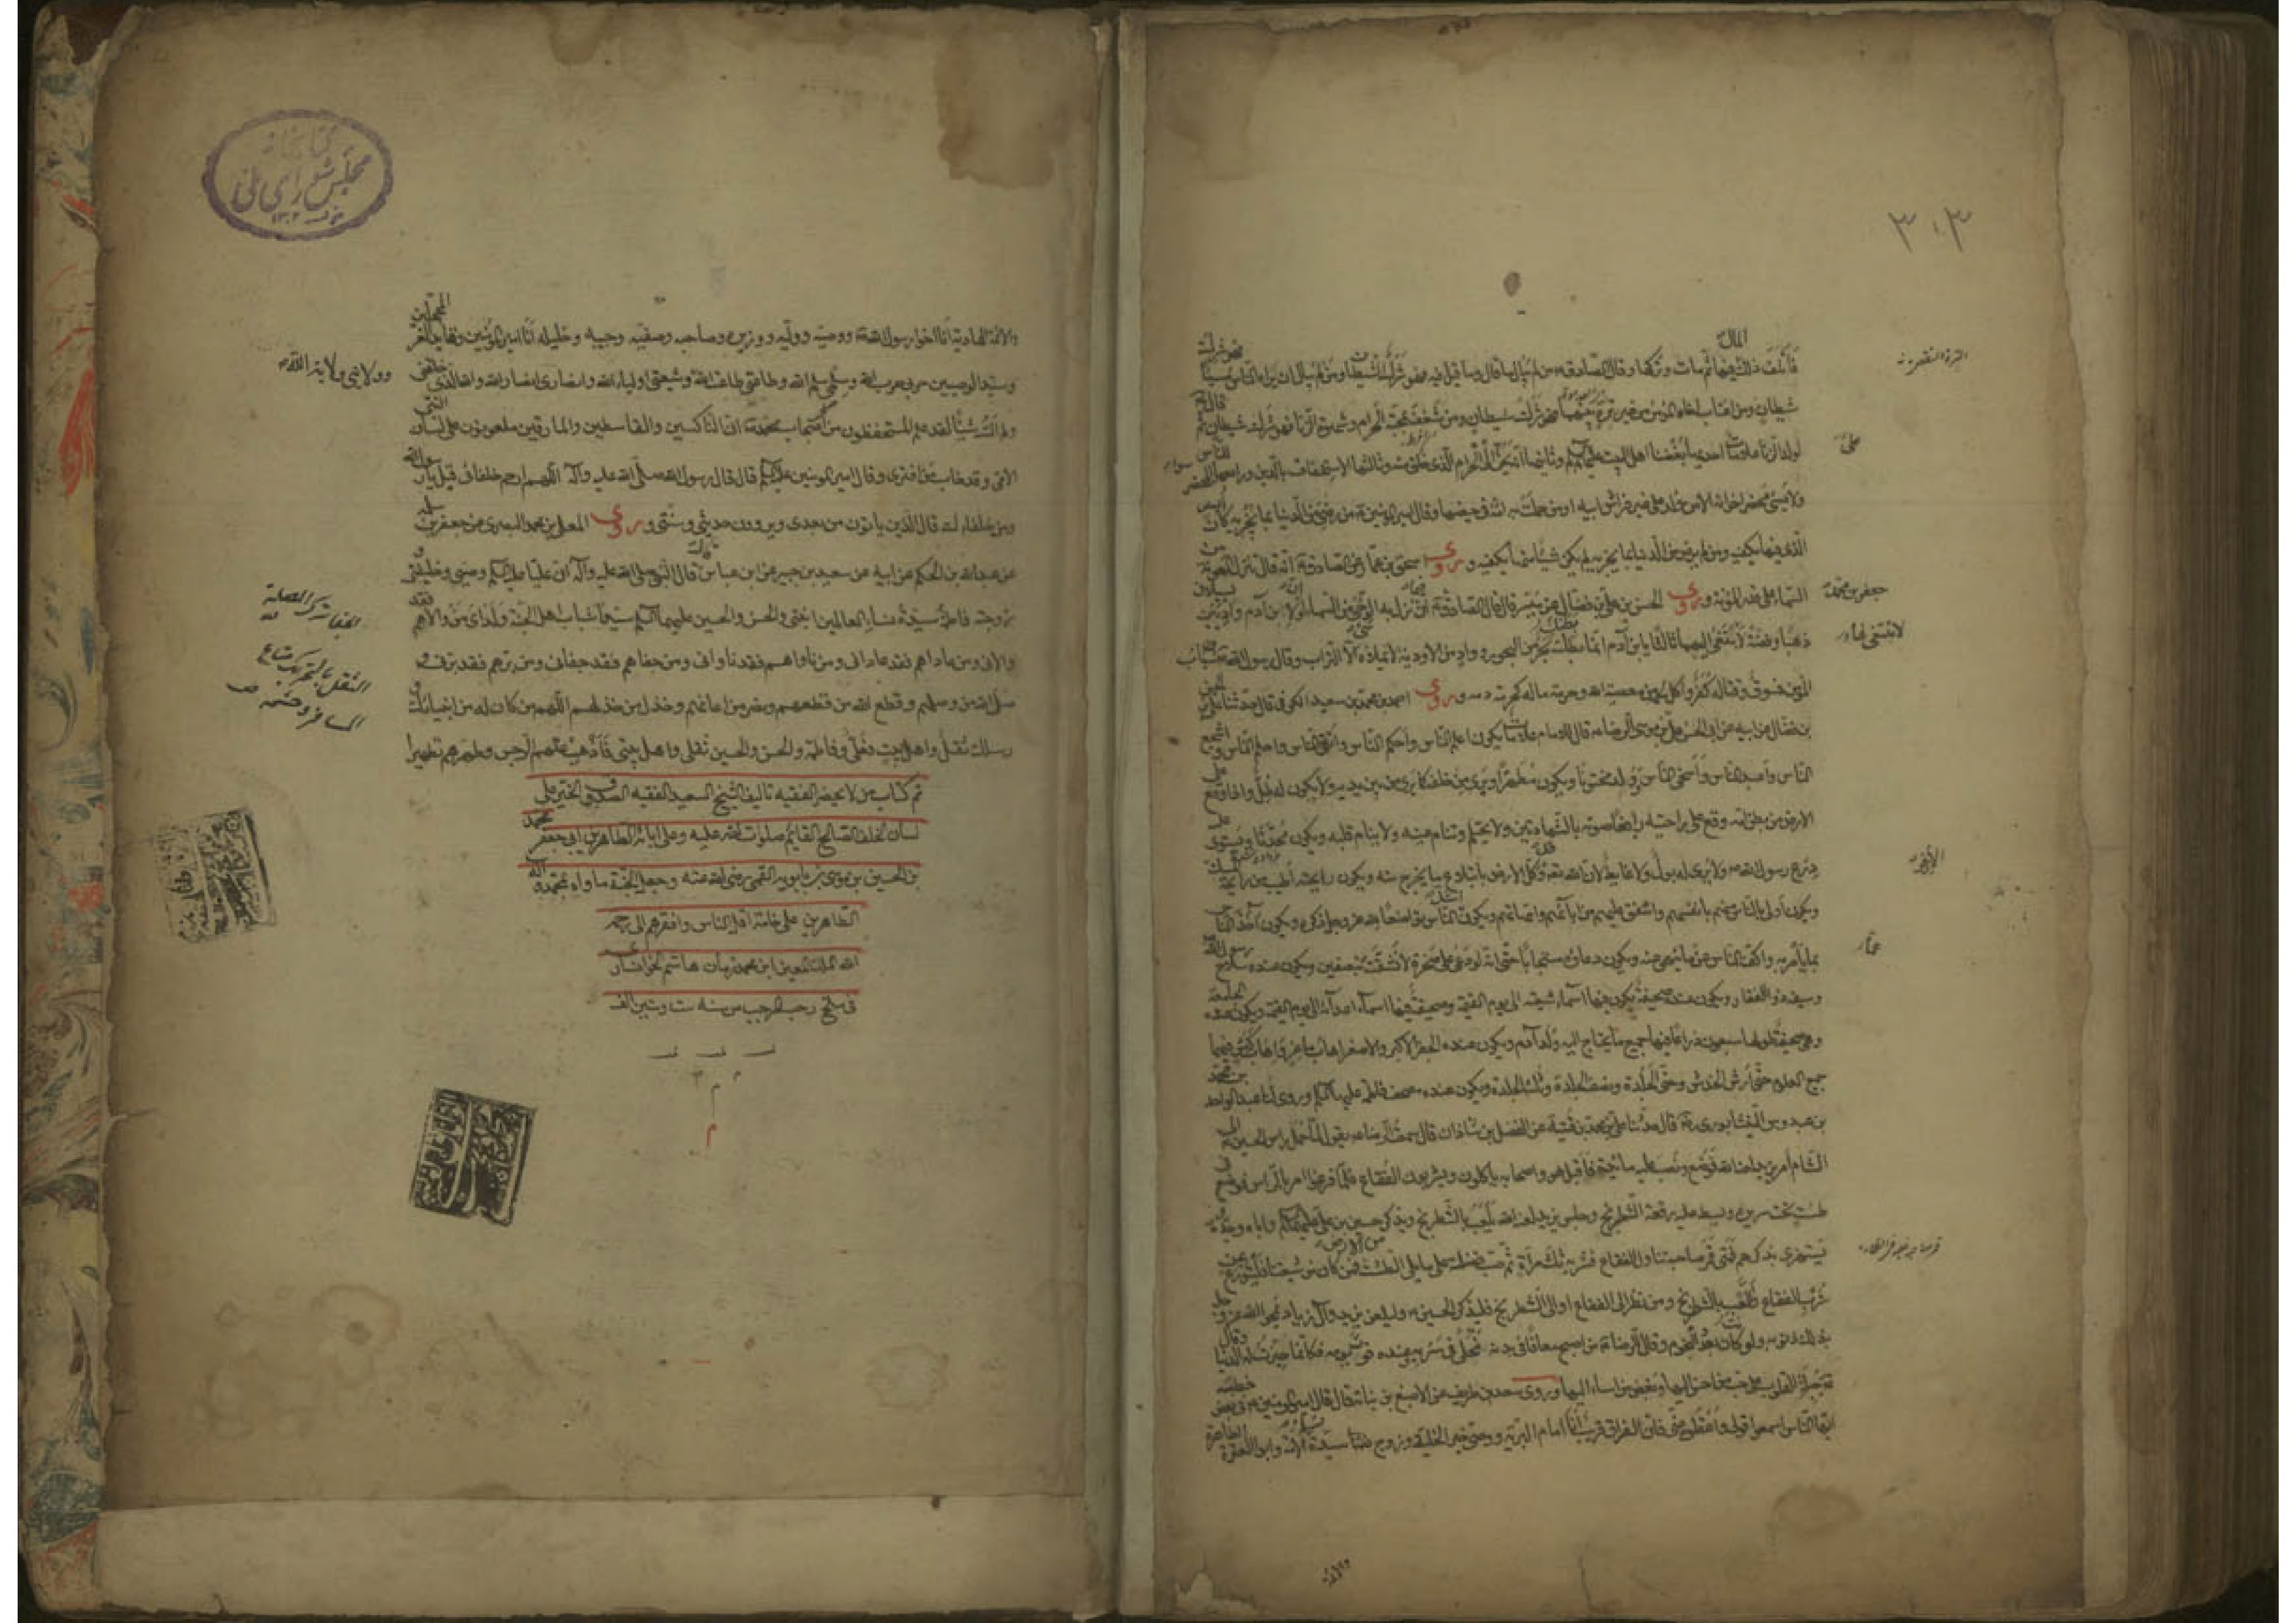 ٣٠٣
المال
فأتلف ذلك فيها ثم مات وتركها وقال الصادق ع من لم يبال ما قال وما قيل فيه فهو شرك الشيطان ومن لم يبال ان يراه الناس مسيئا فهو شرك
شيطان ومن اغتاب اخاه المؤمن من غير ترة بينهما فهو شرك شيطان ومن شغف بمحبة الحرام وشهوة الزنا فهو شرك شيطان ثم قال ع
لولد الزنا علامات احدها بغضنا اهل البيت عليهم السلام وثانيها انه يحن الى الحرام الذي خلق منه وثالثها الاستخفاف بالدين ورابعها سوء المحضر للناس
ولا يسئ محضر اخوانه الا من ولد على غير فراش ابيه او من حملت به امه في حيضها وقال امير المؤمنين ع من رضي من الدنيا بما يجزيه كان ايسر
الذي فيها يكفيه ومن لم يرض من الدنيا بما يجزيه لم يكن شئ منها يكفيه وروى اسحق بن عمار عن الصادق ع انه قال تنزل المعونة من
السماء على قدر المؤنة وروى الحسن بن علي بن فضال عن ميسر قال قال الصادق ع ان فيما نزل به الوحي من السماء لو ان لابن آدم واديين يسيلان
ذهبا وفضة لابتغى اليهما ثالثا يا بن آدم انما بطنك بحر من البحور وواد من الاودية لا يملاه شئ الا التراب وقال رسول الله ص سباب
المؤمن فسوق وقتاله كفر واكل لحمه من معصية الله وحرمة ماله كحرمة دمه وروى احمد بن محمد بن سعيد الكوفي قال حدثنا علي بن الحسن
بن فضال عن ابيه عن ابي الحسن علي بن موسى الرضا ع قال للامام علامات يكون اعلم الناس واحكم الناس واتقى الناس واحلم الناس واشجع
الناس واعبد الناس واسخى الناس ويولد مختونا ويكون مطهرا ويرى من خلفه كما يرى من بين يديه ولا يكون له ظل واذا وقع على
الارض من بطن امه وقع على راحتيه رافعا صوته بالشهادتين ولا يحتلم وتنام عينه ولا ينام قلبه ويكون محدثا ويستوي عليه
درع رسول الله ص ولا يرى له بول ولا غايط لان الله تعه قد وكل الارض بابتلاع ما يخرج منه ويكون رايحته اطيب من رايحة المسك
ويكون اولى بالناس منهم بانفسهم واشفق عليهم من آبائهم وامهاتهم ويكون اشد الناس تواضعا لله عز وجل ذكره ويكون آخذ الناس
بما يأمر به واكف الناس عما ينهى عنه ويكون دعاؤه مستجابا حتى انه لو دعى على صخرة لانشقت بنصفين ويكون عنده سلاح رسول الله
وسيفه ذو الفقار ويكون عنده صحيفة يكون فيها اسماء شيعته الى يوم القيمة وصحيفة فيها اسماء اعدائه الى يوم القيمة ويكون عنده الجامعة
وهي صحيفة طولها سبعون ذراعا فيها جميع ما يحتاج اليه ولد آدم ويكون عنده الجفر الاكبر والاصغر اهاب ماعز واهاب كبش فيهما
جميع العلوم حتى ارش الخدش وحتى الجلدة ونصف الجلدة وثلث الجلدة ويكون عنده مصحف فاطمة عليها السلام وروى لنا عبد الواحد بن محمد
بن عبدوس النيشابوري ره قال حدثنا علي بن محمد بن قتيبة عن الفضل بن شاذان قال سمعت الرضا ع يقول لما حمل راس الحسين ع الى
الشام امر يزيد لعنه الله فوضع ونصب عليه مائدة فاقبل هو واصحابه ياكلون ويشربون الفقاع فلما فرغوا امر بالراس فوضع في
طست تحت سريره وبسط عليه رقعة الشطرنج وجلس يزيد لعنه الله يلعب بالشطرنج ويذكر حسين بن علي عليهما السلام واباه وجده
يستهزئ بذكرهم فمتى قمر صاحبه تناول الفقاع فشربه ثلث مرات ثم صب فضلته على ما يلي الطست من الارض فمن كان من شيعتنا فليتورع عن
شرب الفقاع واللعب بالشطرنج ومن نظر الى الفقاع او الى الشطرنج فليذكر الحسين ع وليلعن يزيد وآل زياد يمحو الله عز وجل
بذلك ذنوبه ولو كانت بعدد النجوم وقال الرضا ع من اصبح معافا في بدنه مخلى في سربه عنده قوت يومه فكانما حيزت له الدنيا وقال
ع جبلت القلوب على حب من احسن اليها وبغض من اساء اليها وروى سعد بن طريف عن الاصبغ بن نباتة قال قال امير المؤمنين ع في بعض خطبه
ايها الناس اسمعوا قولي واعقلوه عني فان الفراق قريب انا امام البرية ووصي خير الخليقة وزوج سيدة نساء الامة وابو العترة الطاهرة
علي
جعفر بن محمد
لابتغى لهما
عمار
كتابخانه
مجلس شورای ملی
١٣٠٢
والائمة الهادية انا اخو رسول الله ص ووصيه ووليه ووزيره وصاحبه وصفيه وحبيبه وخليله انا امير المؤمنين وقايد الغر المحجلين
وسيد الوصيين حربي حرب الله وسلمي سلم الله وطاعتي طاعة الله وشيعتي اولياء الله وانصاري انصار الله والله الذي خلقني
ولم اك شيئا لقد علم المستحفظون من اصحاب محمد ص ان الناكثين والقاسطين والمارقين ملعونون على لسان النبي
الامي وقد خاب من افترى وقال امير المؤمنين عليه السلام قال قال رسول الله صلى الله عليه وآله اللهم ارحم خلفائي قيل يا رسول الله
ومن خلفاءك قال الذين ياتون من بعدي ويروون حديثي وسنتي وروى المعلى بن محمد البصري عن جعفر بن سليمه
عن عبد الله بن الحكم عن ابيه عن سعيد بن جبير عن ابن عباس قال قال النبي صلى الله عليه وآله ان عليا عليه السلام وصيي وخليفتي و
زوجته فاطمة سيدة نساء العالمين ابنتي والحسن والحسين عليهما السلام سيدا شباب اهل الجنة ولداي من والاهم فقد
والاني ومن عاداهم فقد عاداني ومن ناواهم فقد ناواني ومن جفاهم فقد جفاني ومن برهم فقد برني و
صل الله من وصلهم وقطع الله من قطعهم ونصر من اعانهم وخذل من خذلهم اللهم من كان له من انبيائك و
رسلك ثقل واهل بيت فعلي وفاطمة والحسن والحسين ثقلي واهل بيتي فاذهب عنهم الرجس وطهرهم تطهيرا
وولايتي ولاية الله
الثقل بالتحريك متاع
المسافر وحشمه ص
تم كتاب من لا يحضره الفقيه تاليف الشيخ السعيد الفقيه الصدوق
لسان الخلف الصالح القايم صلوات الله عليه وعلى ابائه الطاهرين ابي جعفر محمد
بن الحسين بن موسى بن بابويه القمي رضي الله عنه وجعل الجنة ماواه بمحمد وآله
الطاهرين على خامة اقل الناس وافقرهم الى رحمة
الله الملك المعين ابن محمد زمان هاشم الخوانساري
في سلخ رجب المرجب من سنه ست وستين الف